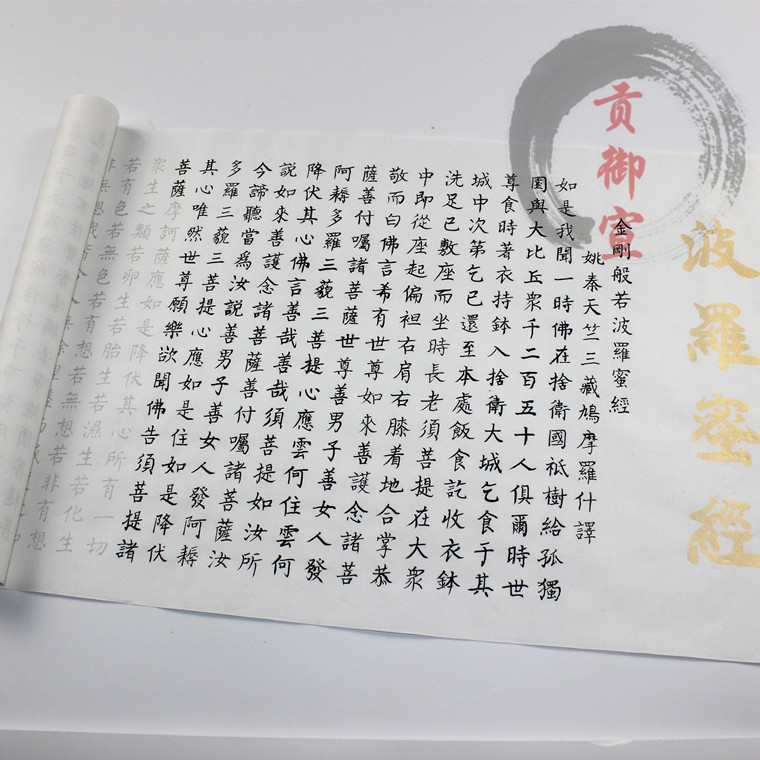 波羅蜜經
貢御宣
金剛般若波羅蜜經
姚秦天竺三藏鳩摩羅什譯
如是我聞一時佛在捨衛國祇樹給孤獨
園與大比丘衆千二百五十人俱爾時世
尊食時著衣持鉢入捨衛大城乞食于其
城中次第乞已還至本處飯食訖收衣鉢
洗足已敷座而坐時長老須菩提在大衆
中即從座起偏袒右肩右膝着地合掌恭
敬而白佛言希有世尊如來善護念諸菩
薩善付囑諸菩薩世尊善男子善女人發
阿耨多羅三藐三菩提心應雲何住雲何
降伏其心佛言善哉善哉須菩提如汝所
說如來善護念諸菩薩善付囑諸菩薩汝
今諦聽當爲汝說善男子善女人發阿耨
多羅三藐三菩提心應如是住如是降伏
其心唯然世尊願樂欲聞佛告須菩提諸
菩薩摩訶薩應如是降伏其心所有一切
衆生之類若卵生若胎生若濕生若化生
若有色若無色若有想若無想若非有想